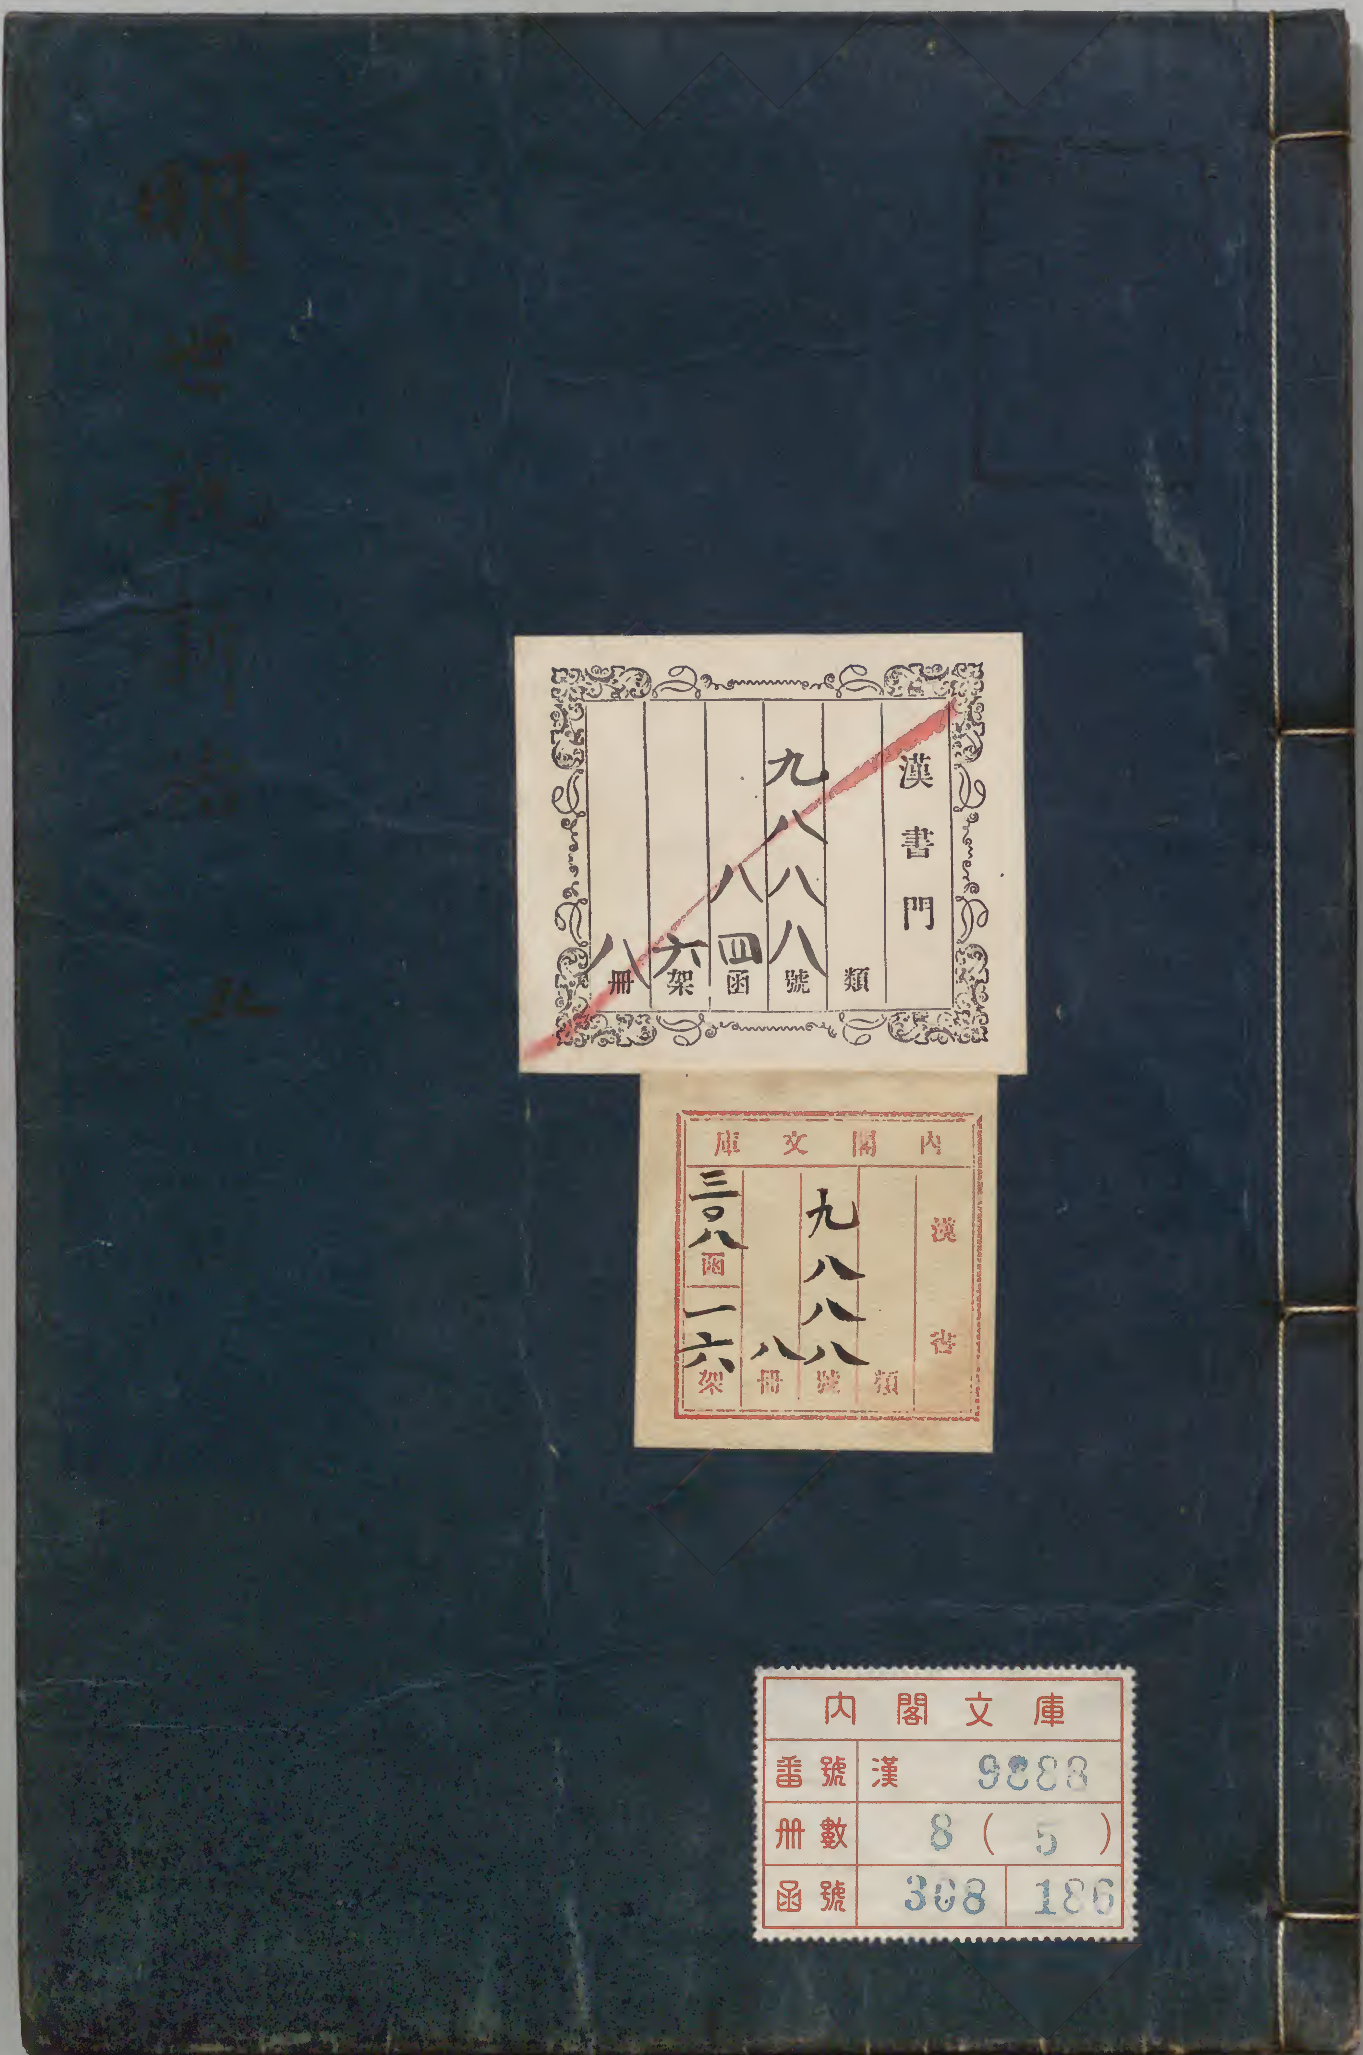 明世説新語
五
漢書門
類
九八八八號
八四函
六架
八冊
内閣文庫
漢書
類
九八八八號
八冊
三〇八函
一六架
内閣文庫
番號 漢 9888
册數 8 ( 5 )
函號 308 186